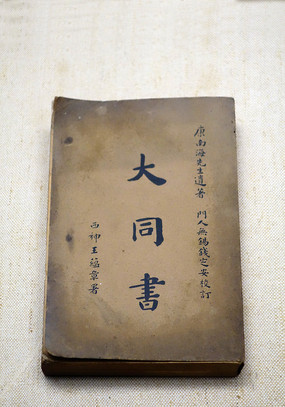 康南海先生遺著　門人無錫錢定安校訂
大同書
西神王蘊章署